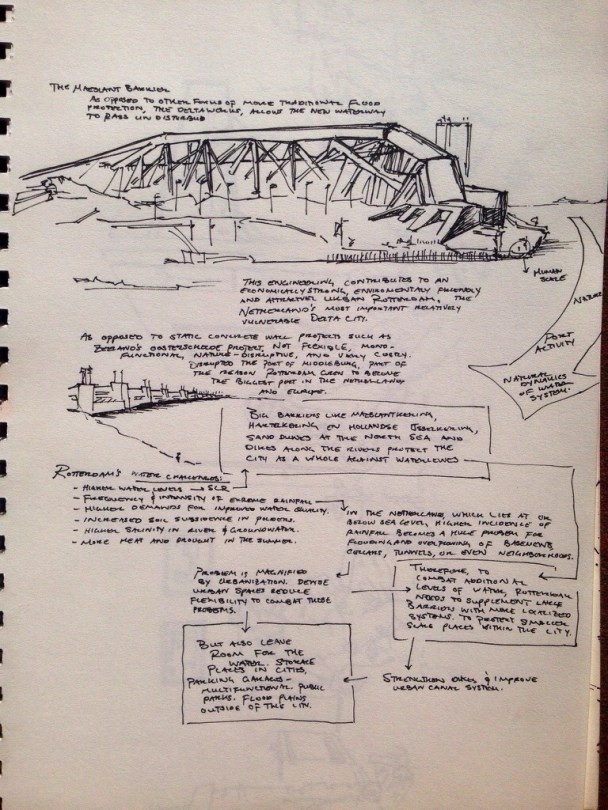 THE MAESLANT BARRIER
AS OPPOSED TO OTHER FORMS OF MORE TRADITIONAL FLOOD
PROTECTION, THE DELTAWORKS, ALLOWS THE NEW WATERWAY
TO PASS UNDISTURBED
HUMAN
SCALE
NATURE
PORT
ACTIVITY
NATURAL
DYNAMICS
OF WATER
SYSTEM.
THIS ENGINEERING CONTRIBUTES TO AN
ECONOMICALLY STRONG, ENVIRONMENTALLY FRIENDLY
AND ATTRACTIVE URBAN ROTTERDAM, THE
NETHERLAND'S MOST IMPORTANT RELATIVELY
VULNERABLE DELTA CITY.
AS OPPOSED TO STATIC CONCRETE WALL PROJECTS SUCH AS
OOSTERSCHELDE PROJECT, NOT FLEXIBLE, MONO-
FUNCTIONAL, NATURE-DISRUPTIVE, AND VERY COSTLY.
DISRUPTED THE PORT OF MIDDLEBURG, PART OF
THE REASON ROTTERDAM GREW TO BECOME
THE BIGGEST PORT IN THE NETHERLANDS
AND EUROPE.
BIG BARRIERS LIKE MAESLANTKERING,
HARTELKERING EN HOLLANDSE IJSSELKERING,
SAND DUNES AT THE NORTH SEA AND
DIKES ALONG THE RIVERS PROTECT THE
CITY AS A WHOLE AGAINST WATERLEVELS
ROTTERDAM'S WATER CHALLENGES:
- HIGHER WATER LEVELS → SLR
- FREQUENCY & INTENSITY OF EXREME RAINFALL
- HIGHER DEMANDS FOR IMPROVED WATER QUALITY.
- INCREASED SOIL SUBSIDENCE IN
- HIGHER SALINITY IN RIVER & GROUNDWATER.
- MORE HEAT AND DROUGHT IN THE SUMMER.
IN THE NETHERLAND, WHICH LIES AT OR
BELOW SEA LEVEL, HIGHER INCIDENCE OF
RAINFALL BECOMES A HUGE PROBLEM FOR
FLOODING AND OF BASEMENTS,
CELLARS, TUNNELS, OR EVEN NEIGHBOURHOODS.
PROBLEM IS MAGNIFIED
BY URBANIZATION. DENSE
URBAN SPACES REDUCE
FLEXIBILITY TO COMBAT THESE
PROBLEMS.
THEREFORE, TO
COMBAT ADDITIONAL
LEVELS OF WATER, ROTTERDAM
NEEDS TO SUPPLEMENT LARGE
BARRIERS WITH MORE LOCALIZED
SYSTEMS. TO PROTECT SMALLER
SCALE PLACES WITHIN THE CITY.
BUT ALSO LEAVE
ROOM FOR THE
WATER. STORAGE
PLACES IN CITIES,
PARKING GARAGES -
MULTIFUNCTIONAL PUBLIC
PARKS. FLOOD PLAINS
OUTSIDE OF THE CITY.
STRENGTHEN DIKES & IMPROVE
URBAN CANAL SYSTEM.